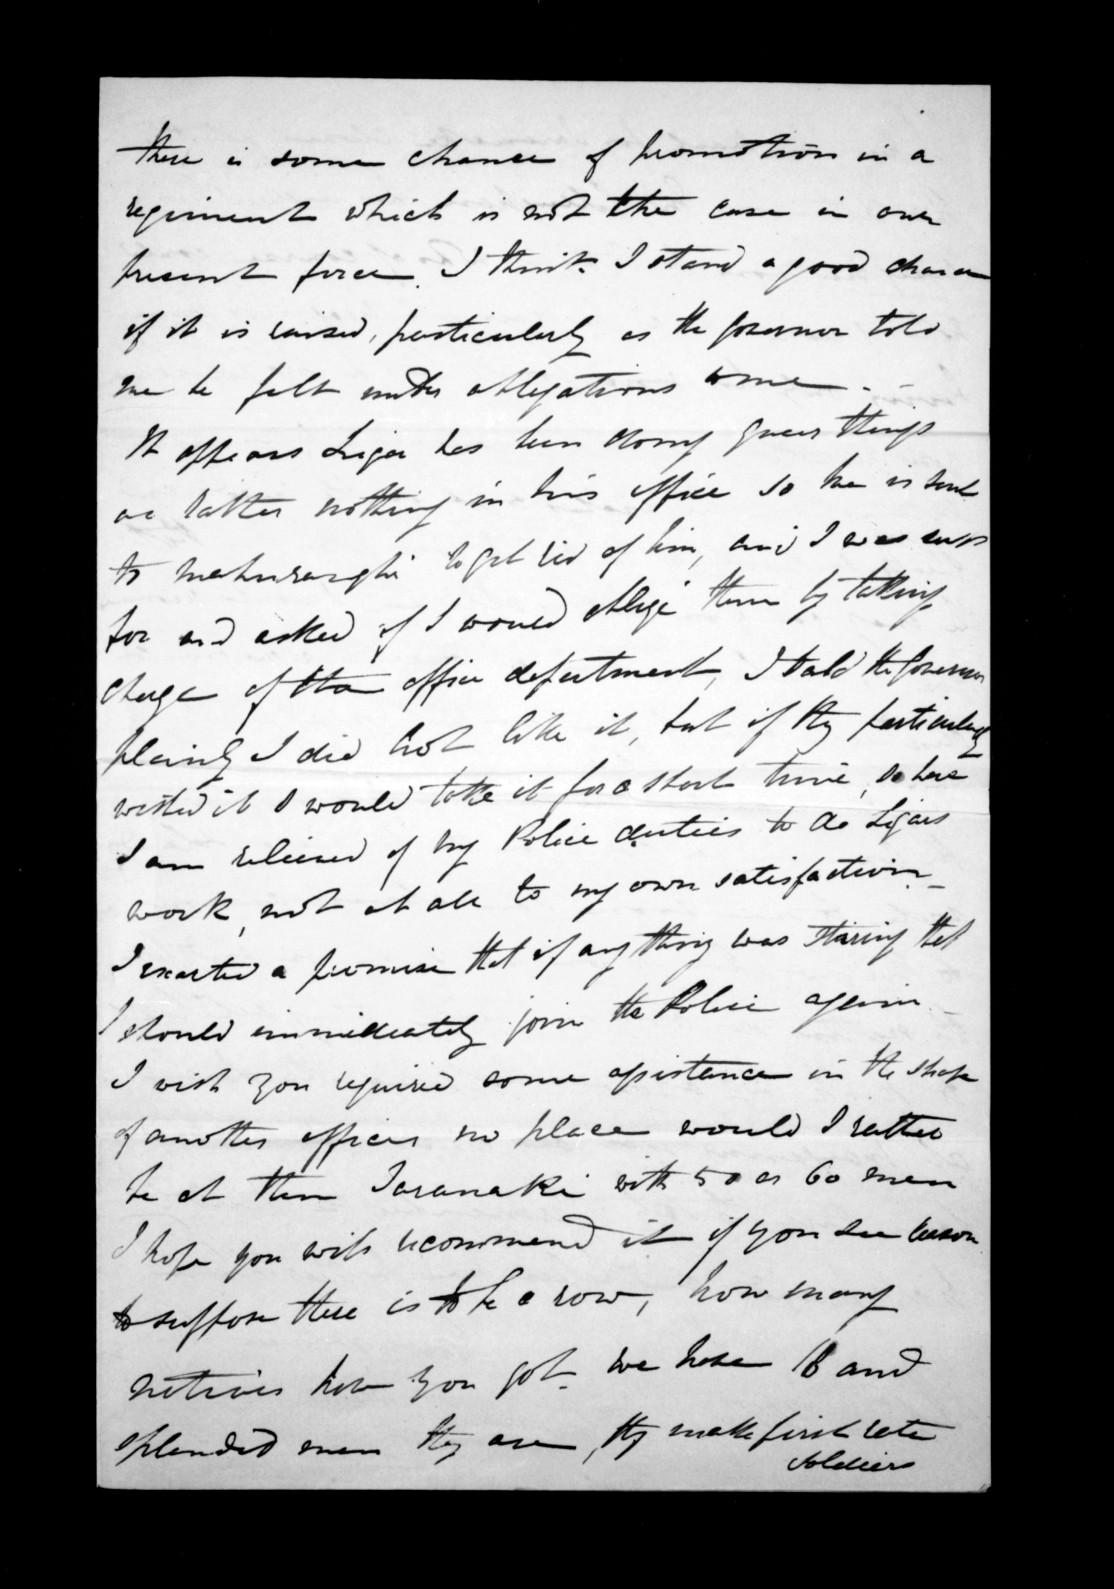 there is some chance of promotion in a
regiment which is not the case in our
present force. I think I stand a good chance
if it is raised, particularly as the Governor told
me he felt under obligations to me. -
It appears Ligar has been doing queer things
or rather nothing in his office so he is sent
to Mahuranghi to get rid of him, and I was sent
for and asked if I would oblige them by taking
charge of the office department, I told the Governor
plainly I did not like it, but if they particularly
wished it I would take it for a short time, so here
I am relieved of my Police duties to do Ligars
work, not at all to my own satisfaction. -
I exacted a promise that if any thing was stirring that
I should immediately join the Police again -
I wish you required some assistance in the shape
of another officer no place would I rather
be at then Taranaki with 50 or 60 men
I hope you will recommend it if you see reason
to suppose there is to be a row, how many
natives have you got. we have 18 and
splendid men they are, they make first rate
soldiers